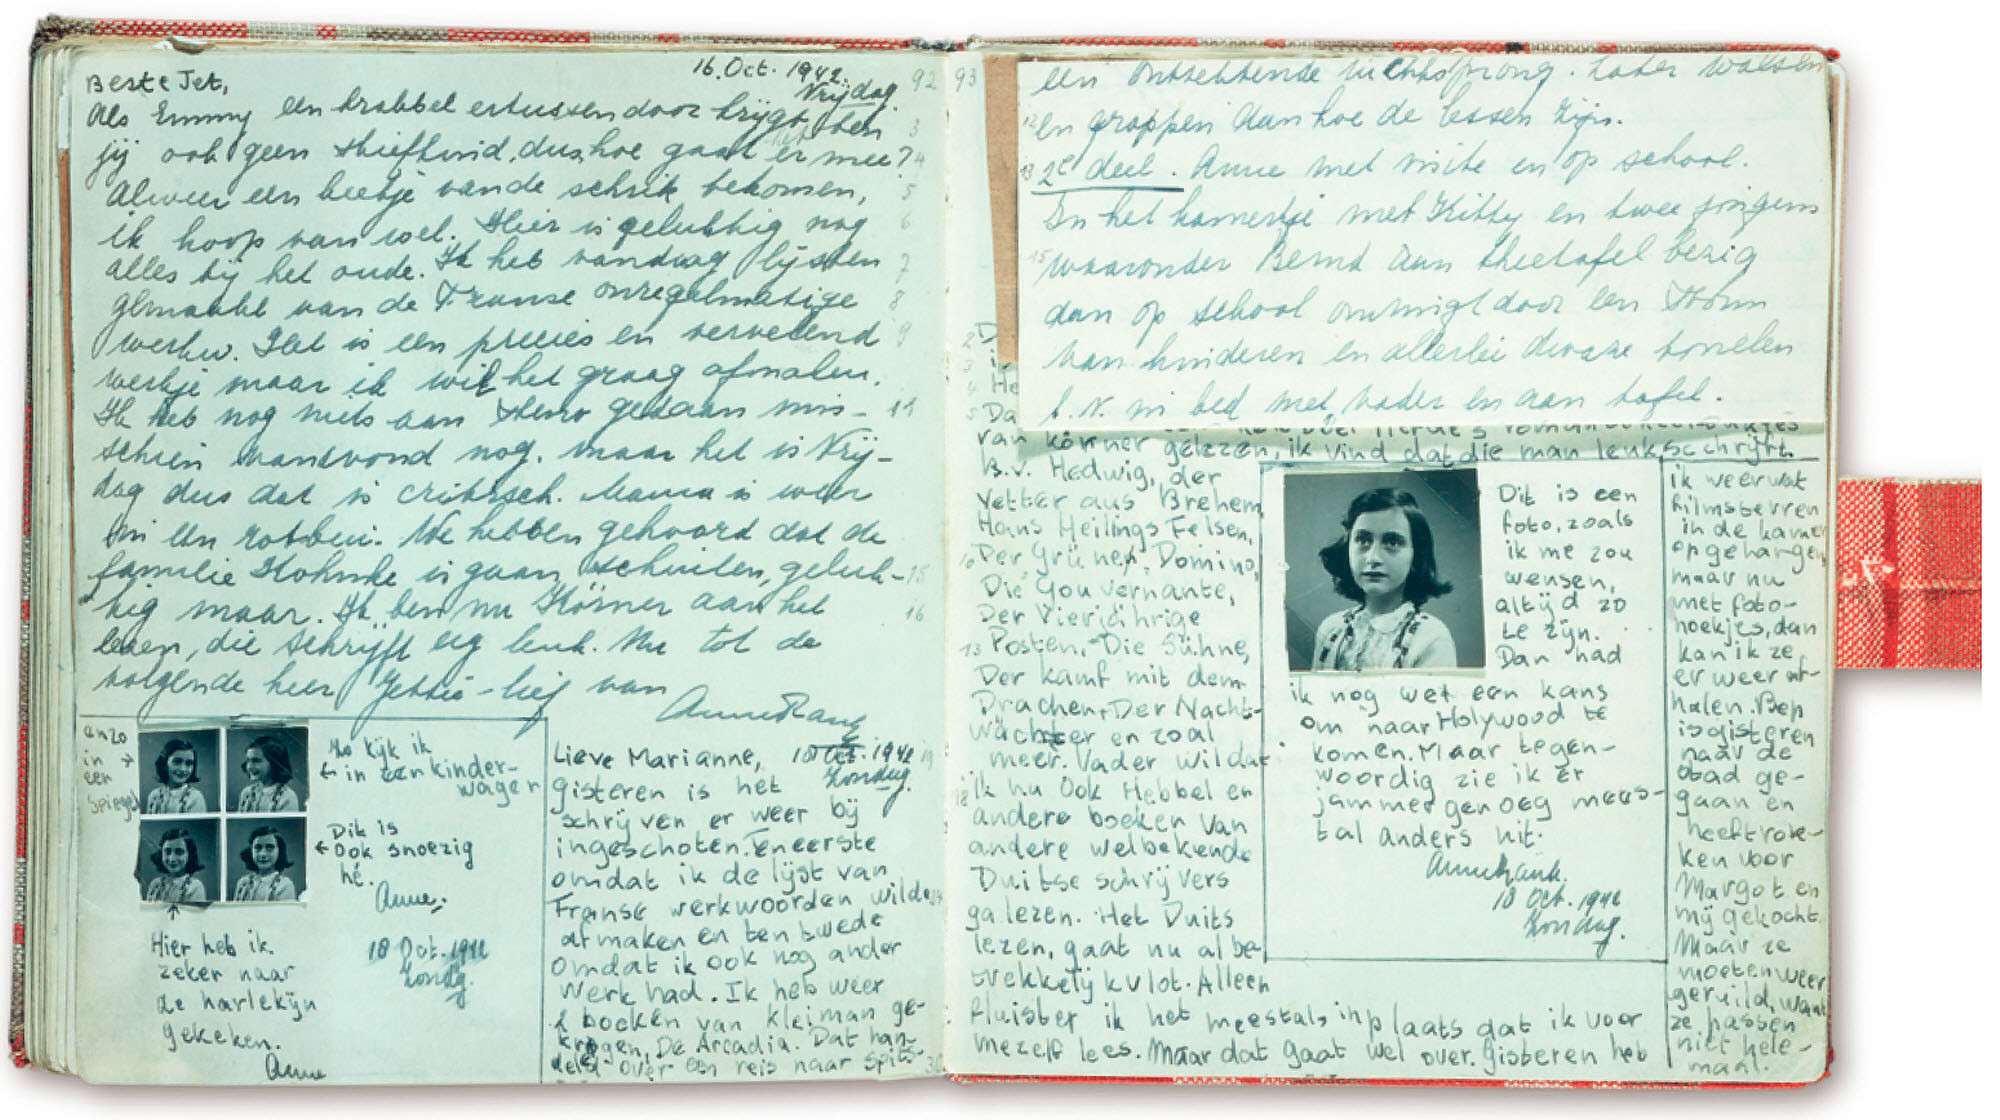 16. Oct. 1942.
Vrijdag.
92
Beste Jet,
Als Emmy een krabbel ertussendoor krijgt, ben
jij ook geen stiefkind, dus hoe gaat het er mee?
Alweer een beetje van de schrik bekomen,
ik hoop van wel. Hier is gelukkig nog
alles bij het oude. Ik heb vandaag lijsten
gemaakt van de Franse onregelmatige
werkw. Het is een precies en vervelend
werkje maar ik wil het graag afmaken.
Ik heb nog niets aan Steno gedaan mis-
schien vanavond nog. maar het is Vrij-
dag dus dat is critiesch. Mama is weer
in een rotbui. We hebben gehoord dat de
familie Kohnke is gaan schuilen, geluk-
kig maar. Ik ben nu Körner aan het
lezen, die schrijft erg leuk. Nu tot de
volgende keer Jettie-lief van
Anne Frank
enzo
in →
een
spiegel
Zo kijk ik
← in een kinder-
wagen
Dit is
← ook snoezig
hé.
Anne.
↑
Hier heb ik
zeker naar
de harlekijn
gekeken.
Anne
18 Oct. 1942
Zondg.
Lieve Marianne,
18 Oct. 1942
Zondag.
Gisteren is het
schrijven er weer bij
ingeschoten. Eneerste
omdat ik de lijst van
Franse werkwoorden wilde
afmaken en ten twede
omdat ik ook nog ander
werk had. Ik heb weer
2 boeken van kleiman ge-
kregen, De Arcadia. Dat han-
delst over een reis naar Spits-
93
een ontzettende luchtsprong. Later walsen
en grappen dan hoe de lessen zijn.
2e deel. Anne met visite en op school.
In het kamertje met Kitty en twee jongens
waaronder Bernd aan theetafel bezig
dan op school omringt door een stroom
van kinderen en allerlei dwaze tonelen
b.v. in bed met vader en aan tafel.
van körner gelezen, ik vind dat die man leuk schrijft.
B.v. Hedwig, der
Vetter aus Brehem,
Hans Heilings Felsen,
Der Grüner, Domino,
Die Gouvernante,
Der Vierjährige
Posten, Die Sühne,
Der kamf mit dem
Drachen, Der Nacht-
wächter en zoal
meer. Vader wil dat
ik nu Ook Hebbel en
andere boeken van
andere welbekende
Duitse schrijvers
ga lezen. Het Duits
lezen, gaat nu al be-
trekkelijk vlot. Alleen
fluister ik het meestals inplaats dat ik voor
mezelf lees. Maar dat gaat wel over. Gisteren heb
Dit is een
foto, zoals
ik me zou
wensen,
altijd zo
te zijn.
Dan had
ik nog wel een kans
om naar Holywood te
komen. Maar tegen-
woordig zie ik er
jammer genoeg mees-
tal anders uit.
Anne Frank.
18 Oct. 1942
Zondag.
ik weer wat
filmsterren
in de kamer
opgehangen,
maar nu
met foto-
hoekjes, dan
kan ik ze
er weer af-
halen. Bep
is gisteren
naar de
stad ge-
gaan en
heeft rok-
ken voor
Margot en
mij gekocht.
Maar ze
moeten weer
geruild, want
ze passen
niet hele-
maal.